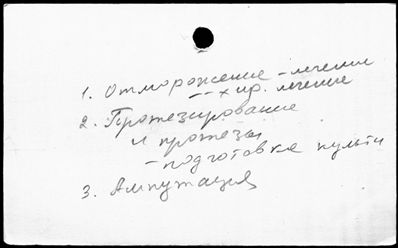 1. Отморожение - лечение
-- хир. лечение
2. Протезирование
и протезы
- подготовка культи
3. Ампутация